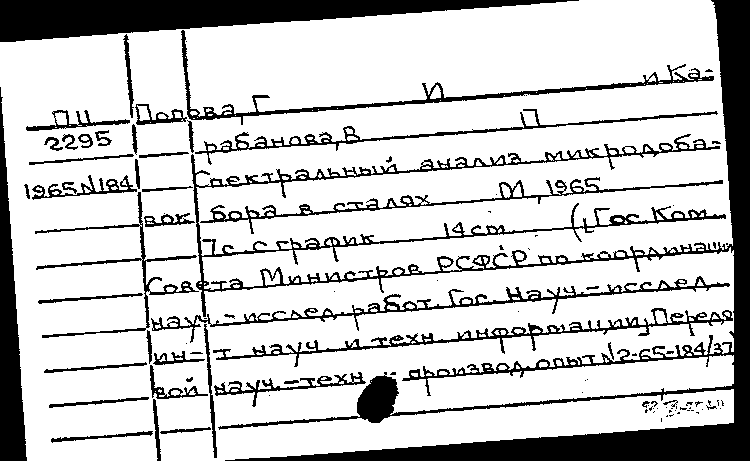 ПЦ Попова, Г И и Ка=
2295 рабанова, В П
1965 N184 Спектральный анализ микродоба=
вок бора в сталях М, 1965
7с с график 14 cm (Гос. Ком.
Совета Министров РСФСР по координации
науч.-исслед. работ. Гос. Науч.-исслед.
ин-т науч. и техн. информации, Передо
вой науч.-техн и производ. опыт N2-65-184/37